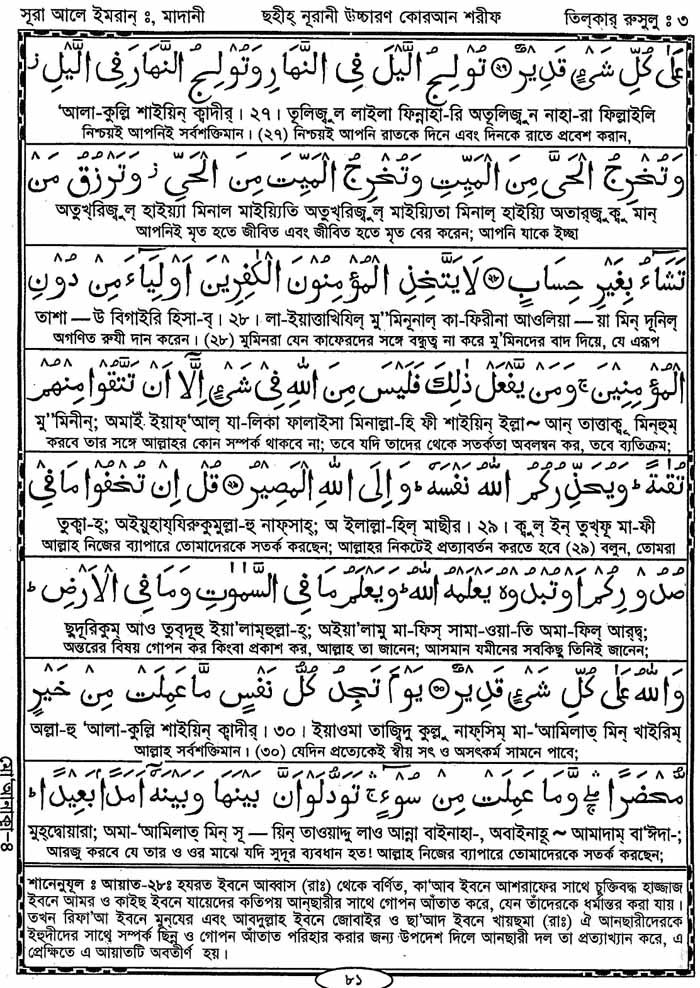 সূরা আলে ইমরান্ ঃ, মাদানী ছহীহ্ নূরানী উচ্চারণ কোরআন শরীফ তিল্‌কার্ রুসুলু ঃ ৩
عَلٰى كُلِّ شَيْءٍ قَدِيْرٌ ﴿٢٦﴾ تُوْلِجُ الَّيْلَ فِى النَّهَارِ وَتُوْلِجُ النَّهَارَ فِى الَّيْلِ ز
‘আলা-কুল্লি শাইয়িন্ ক্বাদীর্। ২৭। তূলিজ্বুল লাইলা ফিন্নাহা-রি অতূলিজ্বুন নাহা-রা ফিল্লাইলি
নিশ্চয়ই আপনিই সর্বশক্তিমান। (২৭) নিশ্চয়ই আপনি রাতকে দিনে এবং দিনকে রাতে প্রবেশ করান,
وَتُخْرِجُ الْحَىَّ مِنَ الْمَيِّتِ وَتُخْرِجُ الْمَيِّتَ مِنَ الْحَىِّ ز وَتَرْزُقُ مَنْ
অতুখ্‌রিজ্বুল্ হাইয়্যা মিনাল মাইয়্যিতি অতুখ্‌রিজ্বুল্ মাইয়্যিতা মিনাল্ হাইয়্যি অতার্‌জ্বুক্বু মান্
আপনিই মৃত হতে জীবিত এবং জীবিত হতে মৃত বের করেন; আপনি যাকে ইচ্ছা
تَشَآءُ بِغَيْرِ حِسَابٍ ﴿٢٧﴾ لَا يَتَّخِذِ الْمُؤْمِنُوْنَ الْكٰفِرِيْنَ اَوْلِيَآءَ مِنْ دُوْنِ
তাশা — উ বিগাইরি হিসা-ব্। ২৮। লা-ইয়াত্তাখিযিল্ মু"মিনূনাল্ কা-ফিরীনা আওলিয়া — য়া মিন্ দূনিল্
অগণিত রুযী দান করেন। (২৮) মুমিনরা যেন কাফেরদের সঙ্গে বন্ধুত্ব না করে মু'মিনদের বাদ দিয়ে, যে এরূপ
الْمُؤْمِنِيْنَ ج وَمَنْ يَّفْعَلْ ذٰلِكَ فَلَيْسَ مِنَ اللهِ فِىْ شَىْءٍ اِلَّآ اَنْ تَتَّقُوْا مِنْهُمْ
মু"মিনীন্; অমাইঁ ইয়াফ্‘আল্ যা-লিকা ফালাইসা মিনাল্লা-হি ফী শাইয়িন্ ইল্লা~ আন্ তাত্তাক্বূ মিন্‌হুম্
করবে তার সঙ্গে আল্লাহর কোন সম্পর্ক থাকবে না; তবে যদি তাদের থেকে সতর্কতা অবলম্বন কর, তবে ব্যতিক্রম;
تُقٰىةً ط وَيُحَذِّرُكُمُ اللهُ نَفْسَهٗ ط وَاِلَى اللهِ الْمَصِيْرُ ﴿٢٨﴾ قُلْ اِنْ تُخْفُوْا مَا فِىْ
তুক্বা-হ্; অইয়ুহায্‌যিরুকুমুল্লা-হু নাফ্‌সাহ্; অ ইলাল্লা-হিল্ মাছীর। ২৯। ক্বুল্ ইন্ তুখ্‌ফূ মা-ফী
আল্লাহ নিজের ব্যাপারে তোমাদেরকে সতর্ক করছেন; আল্লাহর নিকটেই প্রত্যাবর্তন করতে হবে (২৯) বলুন, তোমরা
صُدُوْرِكُمْ اَوْ تُبْدُوْهُ يَعْلَمْهُ اللهُ ط وَيَعْلَمُ مَا فِى السَّمٰوٰتِ وَمَا فِى الْاَرْضِ ط
ছুদূরিকুম্ আও তুব্‌দূহু ইয়া'লাম্‌হুল্লা-হ্; অইয়া'লামু মা-ফিস্ সামা-ওয়া-তি অমা-ফিল্ আর্‌দ্ব;
অন্তরের বিষয় গোপন কর কিংবা প্রকাশ কর, আল্লাহ তা জানেন; আসমান যমীনের সবকিছু তিনিই জানেন;
وَاللهُ عَلٰى كُلِّ شَىْءٍ قَدِيْرٌ ﴿٢٩﴾ يَوْمَ تَجِدُ كُلُّ نَفْسٍ مَّا عَمِلَتْ مِنْ خَيْرٍ
অল্লা-হু ‘আলা-কুল্লি শাইয়িন্ ক্বাদীর্। ৩০। ইয়াওমা তাজ্বিদু কুল্লু নাফ্‌সিম্ মা-‘আমিলাত্ মিন্ খাইরিম্
আল্লাহ সর্বশক্তিমান। (৩০) যেদিন প্রত্যেকেই স্বীয় সৎ ও অসৎকর্ম সামনে পাবে;
مُّحْضَرًا وَّمَا عَمِلَتْ مِنْ سُوْٓءٍ ج تَوَدُّ لَوْ اَنَّ بَيْنَهَا وَبَيْنَهٗٓ اَمَدًۢا بَعِيْدًا ط
মুহ্‌দ্বোয়ারা; অমা-‘আমিলাত্ মিন্ সূ — য়িন্ তাওয়াদ্দু লাও আন্না বাইনাহা-, অবাইনাহূ ~ আমাদাম্ বা'ঈদা-;
আরজু করবে যে তার ও ওর মাঝে যদি সুদূর ব্যবধান হত! আল্লাহ নিজের ব্যাপারে তোমাদেরকে সতর্ক করছেন;
মো'আনাক্বা-৪
শানেনুযূল ঃ আয়াত-২৮ঃ হযরত ইবনে আব্বাস (রাঃ) থেকে বর্ণিত, কা'আব ইবনে আশরাফের সাথে চুক্তিবদ্ধ হাজ্জাজ
ইবনে আমর ও কাইছ ইবনে যায়েদের কতিপয় আন্‌ছারীর সাথে গোপন আঁতাত করে, যেন তাঁদেরকে ধর্মান্তর করা যায়।
তখন রিফা'আ ইবনে মুন্‌যের এবং আবদুল্লাহ ইবনে জোবাইর ও ছা'আদ ইবনে খায়ছমা (রাঃ) ঐ আনছারীদেরকে
ইহুদীদের সাথে সম্পর্ক ছিন্ন ও গোপন আঁতাত পরিহার করার জন্য উপদেশ দিলে আনছারী দল তা প্রত্যাখ্যান করে, এ
প্রেক্ষিতে এ আয়াতটি অবতীর্ণ হয়।
৮১